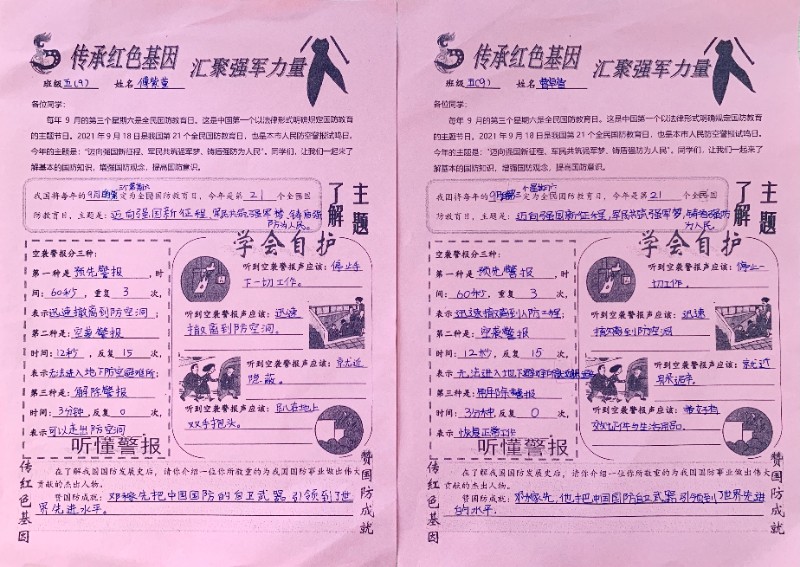 传承红色基因 汇聚强军力量
班级 五(9) 姓名
各位同学：
每年 9 月的第三个星期六是全民国防教育日。这是中国第一个以法律形式明确规定国防教育
的主题节日。2021年9月18日是我国第21个全民国防教育日，也是本市人民防空警报试鸣日。
今年的主题是：“迈向强国新征程，军民共筑强军梦，铸盾强防为人民”。同学们，让我们一起来了
解基本的国防知识，增强国防观念，提高国防意识。
我国将每年的9月 定为全民国防教育日，今年是第 21 个全民国
防教育日，主题是：迈向强国新征程，军民共筑强军梦，铸盾强
防为人民。
主题
了解
学会自护
空袭警报分三种：
第一种是预先警报，时
间：60秒，重复 3 次，
表示迅速撤离到防空洞；
第二种是：空袭警报
时间：12秒，反复 15 次，
表示无法进入地下防空避难所；
第三种是：解除警报
时间：3分钟，反复 0 次，
表示可以走出防空洞
听懂警报
听到空袭警报声应该：停止手
下一切工作。
听到空袭警报声应该：迅速
撤离到防空洞。
听到空袭警报声应该：就近
隐蔽。
听到空袭警报声应该：趴在地上
双手抱头。
传红色基因
赞国防成就
在了解我国国防发展史后，请你介绍一位你所敬重的为我国国防事业做出伟大
贡献的杰出人物。
赞国防成就：邓稼先把中国国防的自卫武器引领到了世
界先进水平。
传承红色基因 汇聚强军力量
班级 五(9) 姓名
各位同学：
每年 9 月的第三个星期六是全民国防教育日。这是中国第一个以法律形式明确规定国防教育
的主题节日。2021年9月18日是我国第21个全民国防教育日，也是本市人民防空警报试鸣日。
今年的主题是：“迈向强国新征程，军民共筑强军梦，铸盾强防为人民”。同学们，让我们一起来了
解基本的国防知识，增强国防观念，提高国防意识。
我国将每年的9月 定为全民国防教育日，今年是第21 个全民国
防教育日，主题是：迈向强国新征程，军民共筑强军梦，铸盾强防
为人民。
主题
了解
学会自护
空袭警报分三种：
第一种是预先警报，时
间：60秒，重复 3 次，
表示迅速撤离到人防工程；
第二种是：空袭警报
时间：12秒，反复 15 次，
表示无法进入地下
第三种是：解除警报
时间：3分钟，反复 0 次，
表示恢复正常工作
听懂警报
听到空袭警报声应该：停止一
切工作。
听到空袭警报声应该：迅速
撤离到防空洞
听到空袭警报声应该：就近
听到空袭警报声应该：
传红色基因
赞国防成就
在了解我国国防发展史后，请你介绍一位你所敬重的为我国国防事业做出伟大
贡献的杰出人物。
赞国防成就：邓稼先，他把中国国防自卫武器引领到了世界先进
的水平.